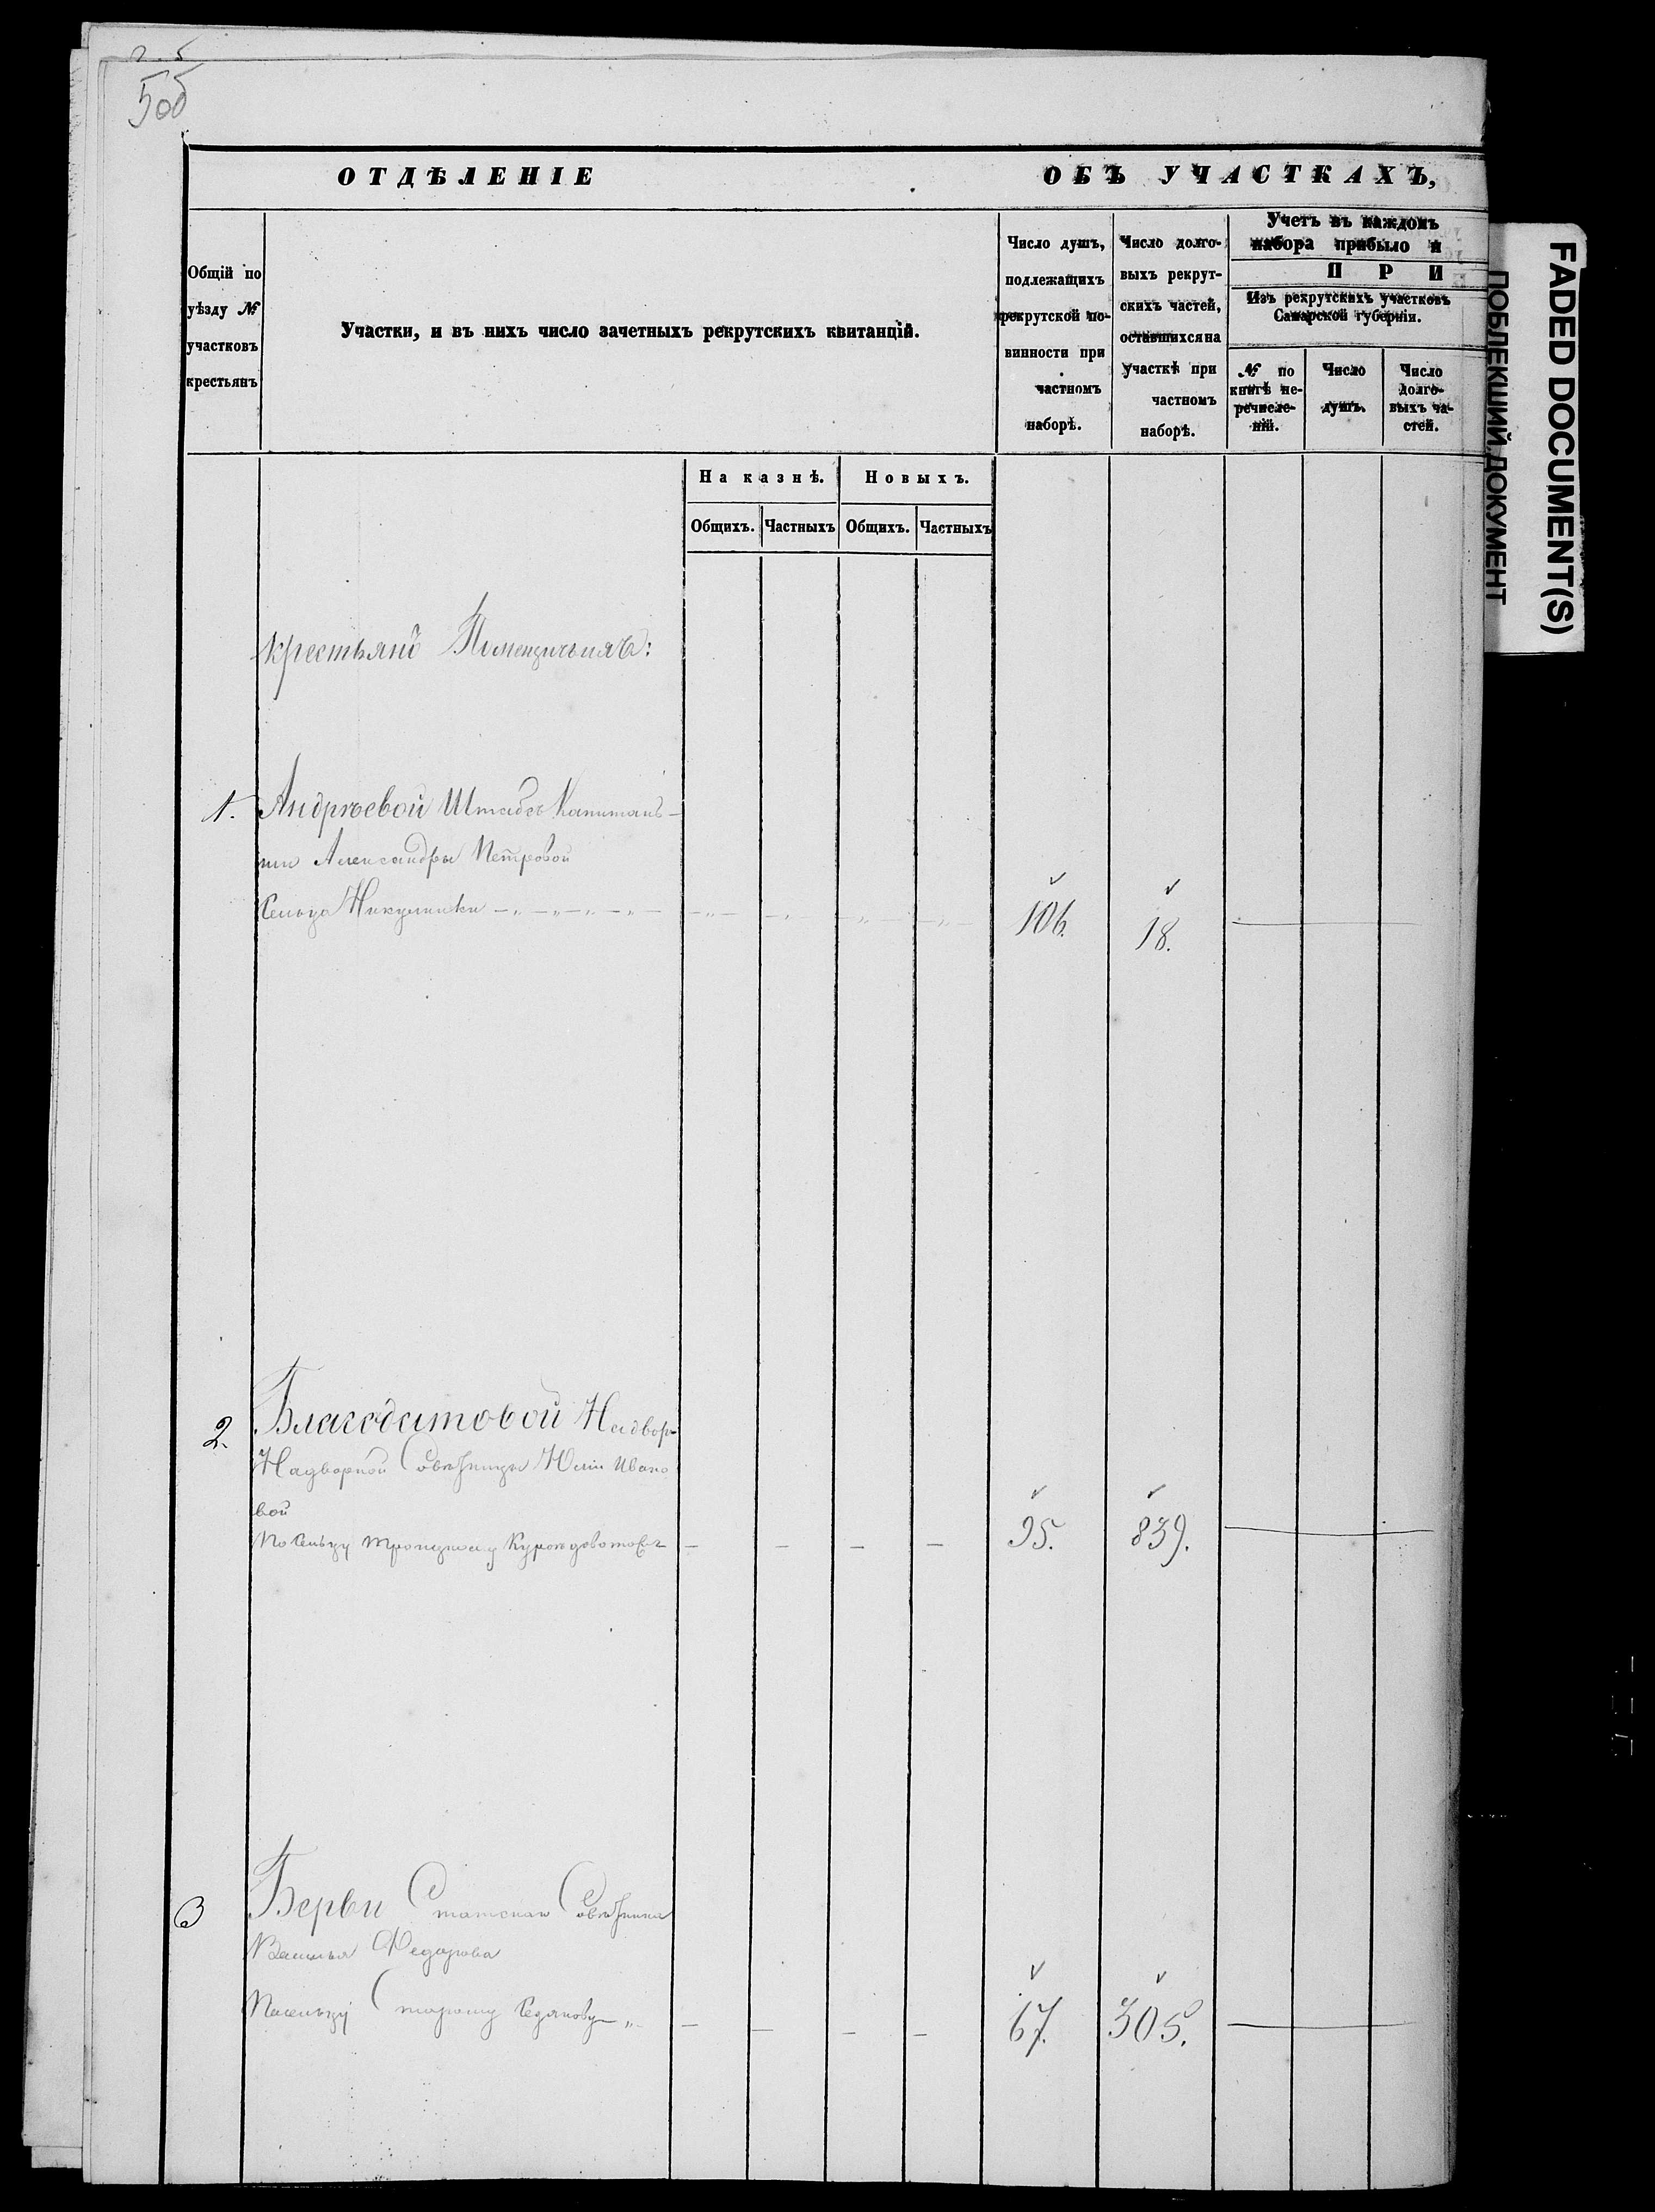 50б
ОТДѢЛЕНІЕ ОБЪ УЧАСТКАХЪ,
Общій по
уѣзду №
участковъ
крестьянъ
Участки, и въ нихъ число зачетныхъ рекрутскихъ квитанцій.
Число душъ,
подлежащихъ
рекрутской по-
винности при
частномъ
наборѣ.
Число долго-
выхъ рекрут-
скихъ частей,
оставшихся на
участкѣ при
частномъ
наборѣ.
Учетъ въ каждомъ
набора прибыло и
ПРИ
Изъ рекрутскихъ участковъ
Самарской губерніи.
№ по
книгѣ пе-
речисле-
ній.
Число
душъ.
Число
долго-
выхъ ча-
стей.
На казнѣ.
Новыхъ.
Общихъ. Частныхъ Общихъ. Частныхъ
крестьянъ Помещичьихъ:
1. Андрѣевой Штабсъ Капитан-
ши Александры Петровой
Сельца Никулинки 106. 18.
2. Благодатовой Надвор-
Надворной Совѣтницы Юліи Ивано
вой
По Сельцу Троицкому 95. 839.
3 Берви Статскаго Совѣтника
Василья Федорова
По сельцу Старому 67. 305.
FADED DOCUMENT(S)
ПОБЛЕКШИЙ ДОКУМЕНТ